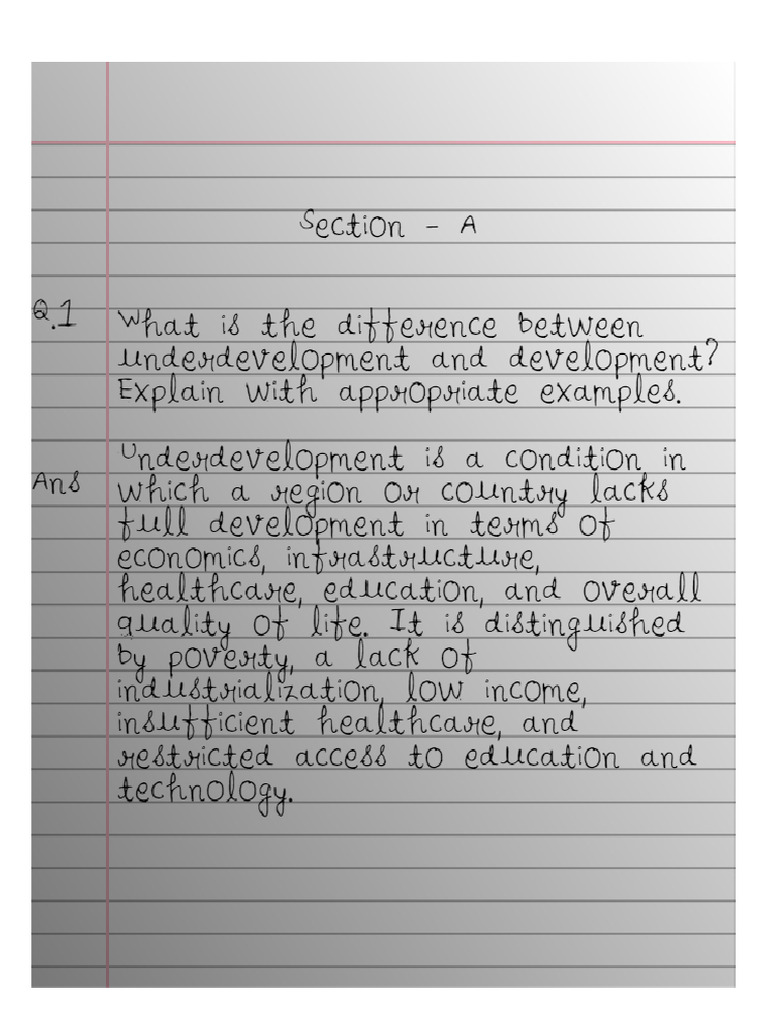 Section - A
Q.1 What is the difference between
underdevelopment and development?
Explain with appropriate examples.
Underdevelopment is a condition in
Ans which a region or country lacks
full development in terms of
economics, infrastructure,
healthcare, education, and overall
quality of life. It is distinguished
by poverty, a lack of
industrialization, low income,
insufficient healthcare, and
restricted access to education and
technology.